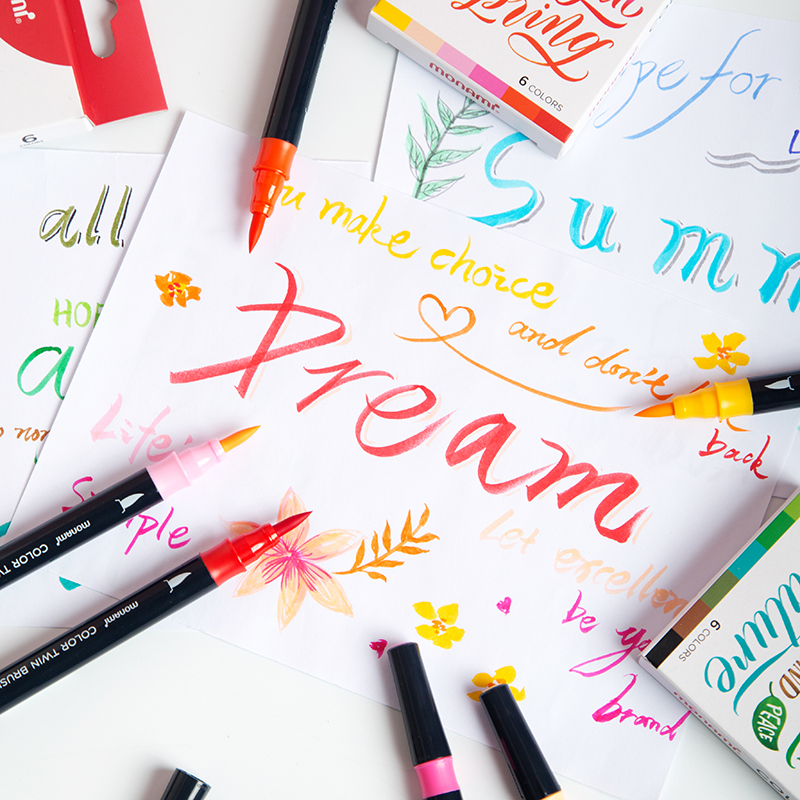 monami
6
Spring
monami
6 COLORS
pe for
Summ
all
u make choice
and don't
back
HOP
a
Dream
Life
ple
Let excellen
be yo
brand
monami COLOR TW
monami COLOR TWIN BRUS
6 COLORS
ature
AND
PEACE